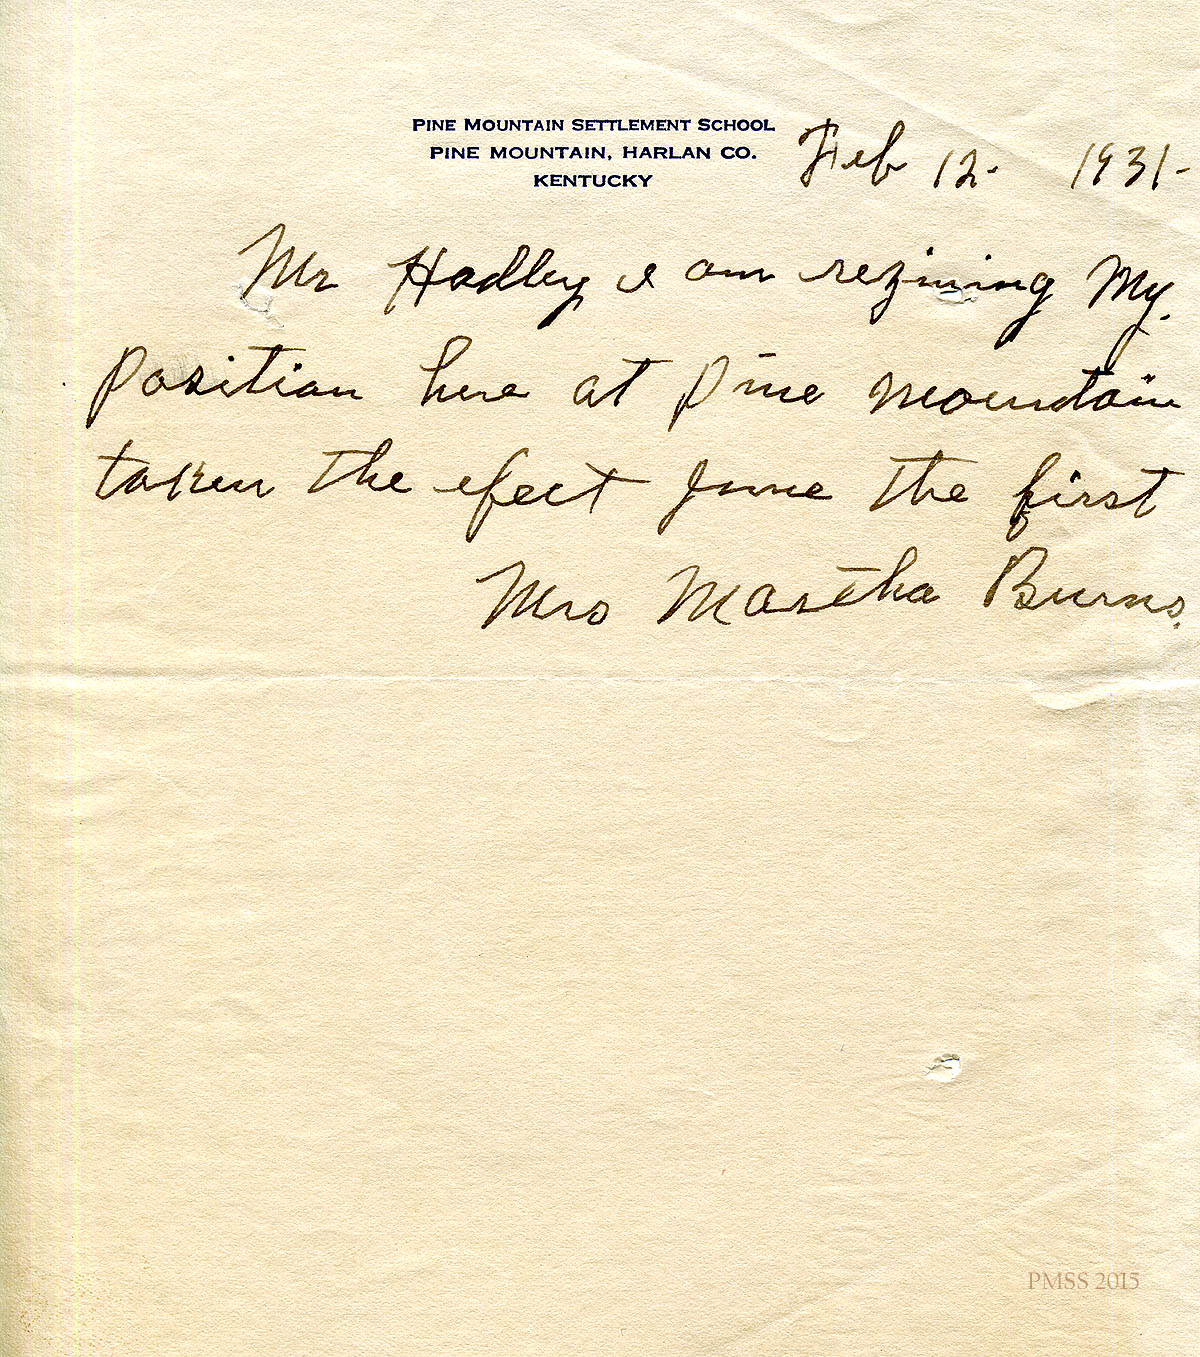 PINE MOUNTAIN SETTLEMENT SCHOOL
PINE MOUNTAIN, HARLAN CO.
KENTUCKY
Feb 12. 1931-
Mr Hadley I am rezining My
Position here at Pine Mountain
taken the efect June the first
Mrs Martha Burns.
PMSS 2015